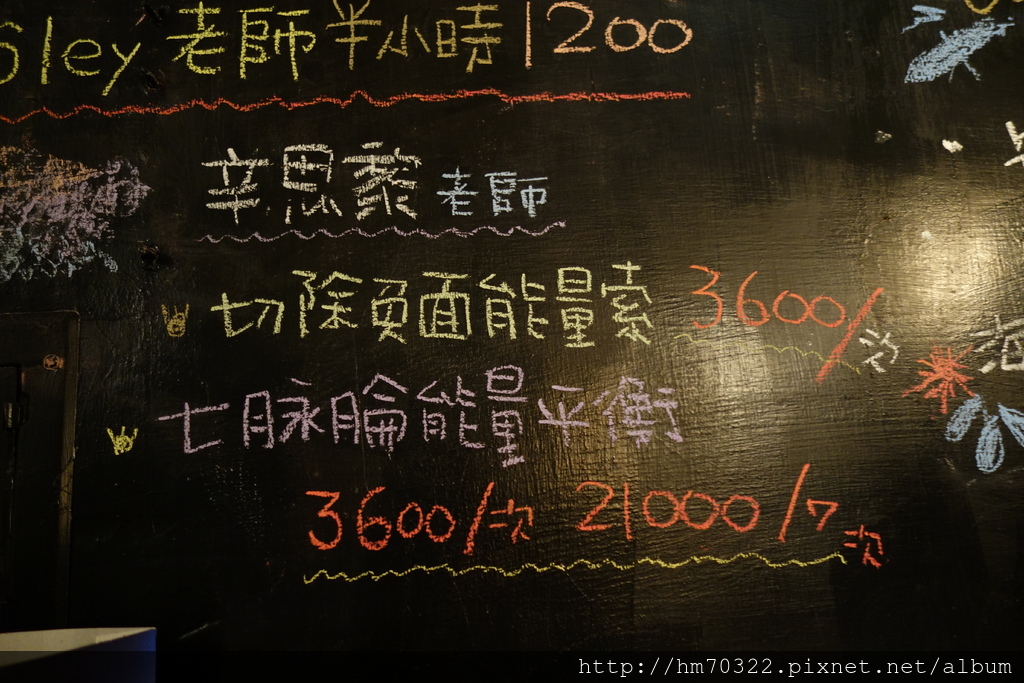 sley 老師半小時1200
辛思蓁 老師
切除負面能量索 3600/次
七脉腀能量平衡
3600/次 21000/7次
http://hm70322.pixnet.net/album